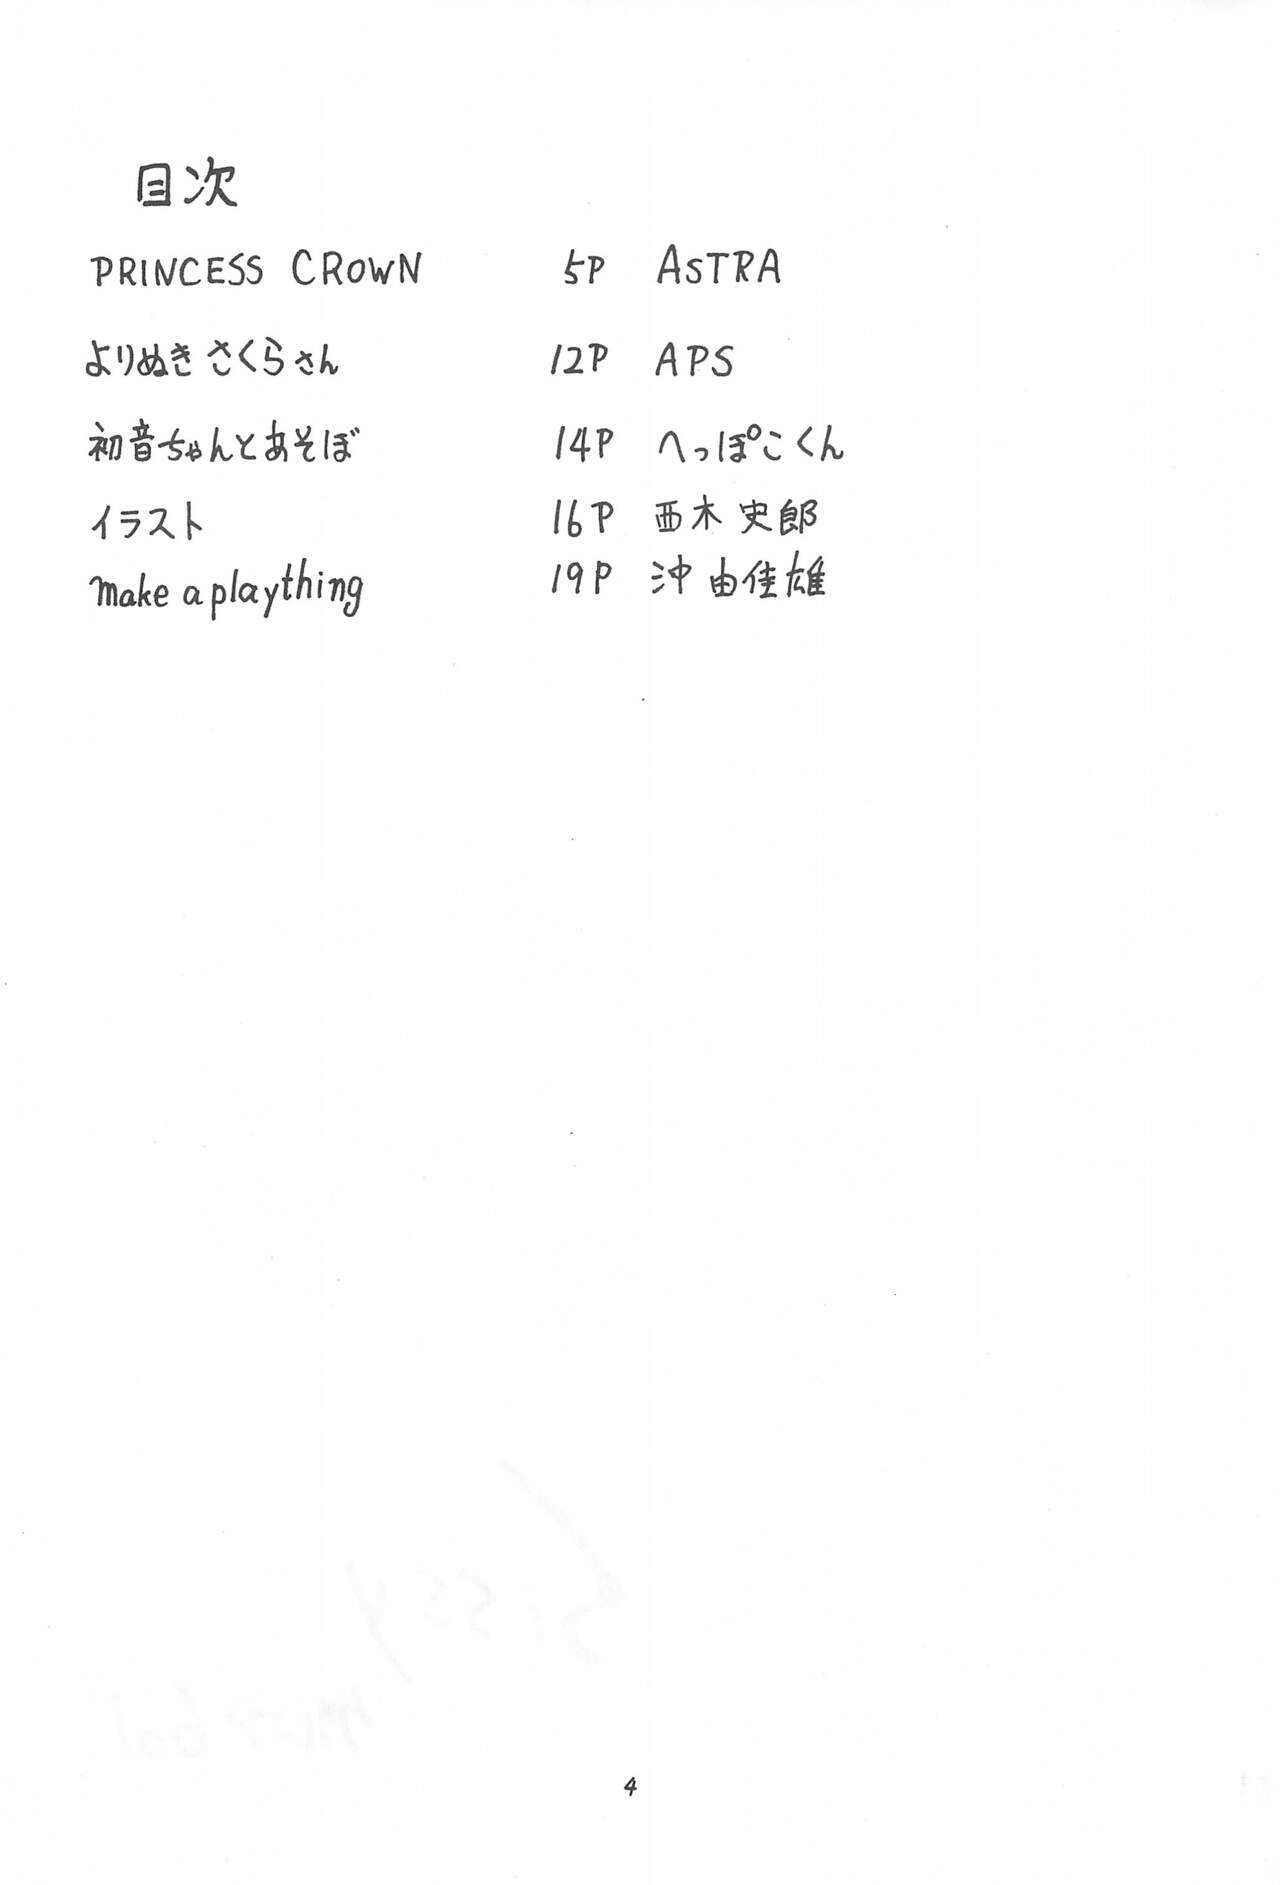 目次
PRINCESS CROWN 5P ASTRA
よりぬき さくらさん 12P APS
初音ちゃんとあそぼ 14P へっぽこくん
イラスト 16P 西木 史郎
make a plaything 19P 沖 由佳雄
4